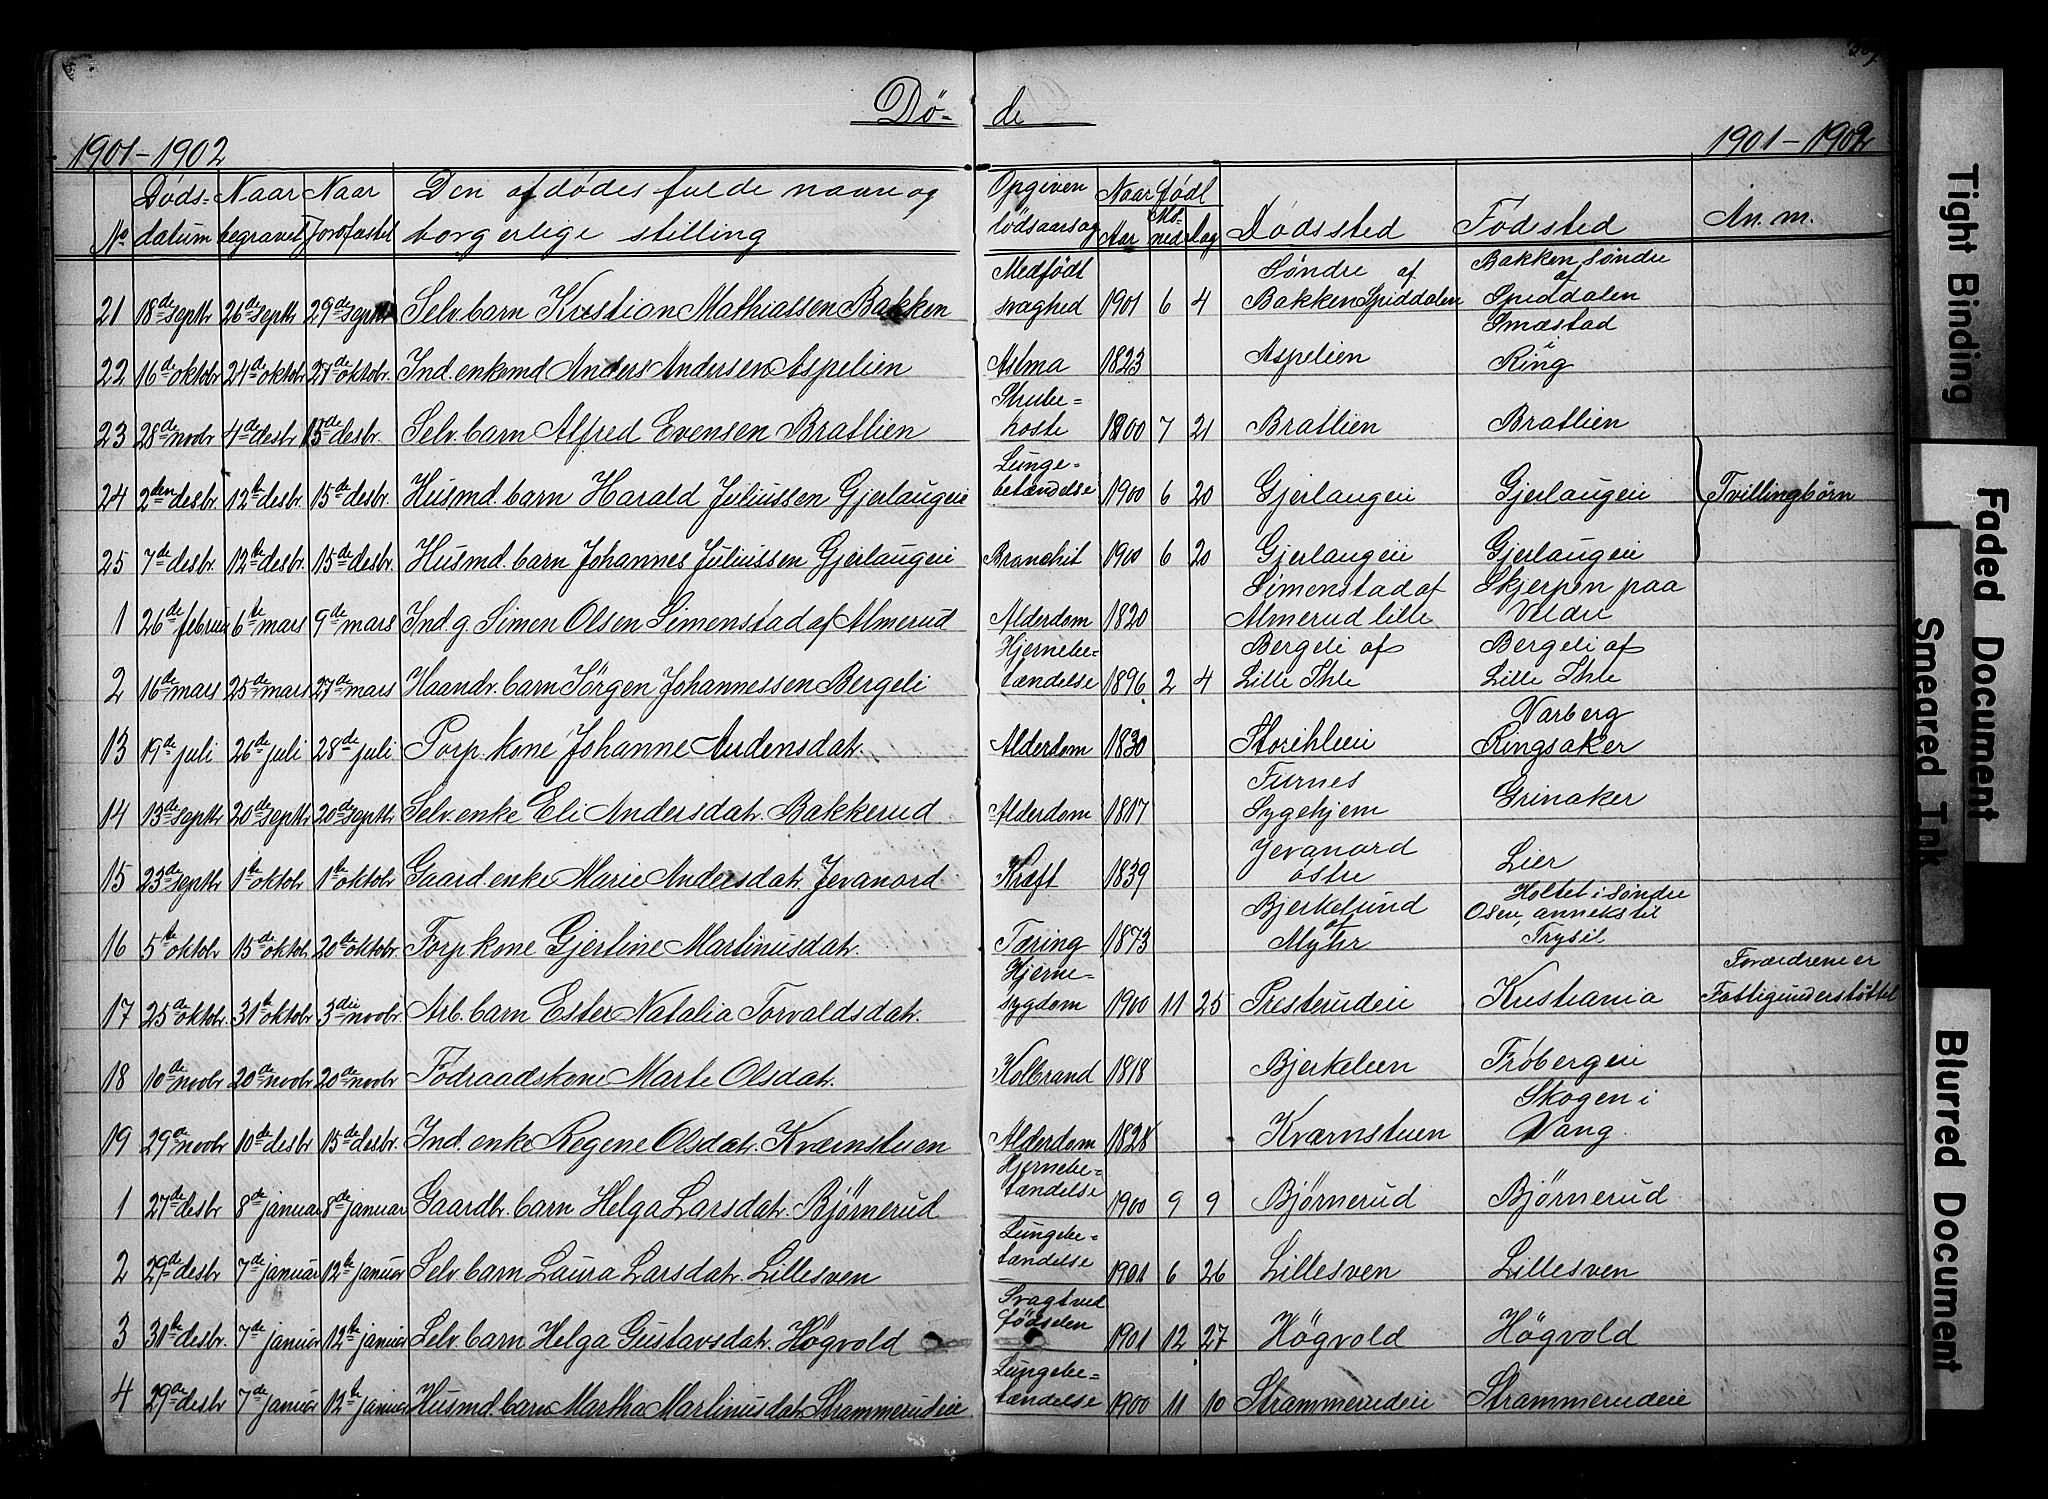 Dö- de
1901-1902 1901-1902
No Døds-datum Naar begravet Jordfæstet Den afdødes fulde navn og borgerlige stilling Opgiven dødsaarsag Naar født Aar Maaned Dag Dødssted Fødested An.m.
21 18de septbr 26de septbr 29de septbr Selv. barn Kristian Mathiassen Bakken Medfödt svaghed 1901 6 4 Søndre af Bakken Spiddalen Bakken Søndre af Spiddalen
22 16de oktobr 24de oktobr 27de oktobr. Ind. enkemd Anders Andersen Aspelien Astma 1823 Aspelien Smæstad i Ring
23 28de novbr 4de desbr 15de desbr. Selv. barn Alfred Evensen Bratlien Strube-hoste 1900 7 21 Bratlien Bratlien
24 2den desbr. 12te desbr 15de desbr. Husmd. barn Harald Juliussen Gjerlaugeie Lunge-betændelse 1900 6 20 Gjerlaugeie Gjerlaugeie Tvillingbørn
25 7de desbr. 12te desbr. 15de desbr. Husmd. barn Johannes Juliussen Gjerlaugeie Bronchit 1900 6 20 Gjerlaugeie Gjerlaugeie
1 26de februar 6te mars 9de mars Ind. g. Simen Olsen Simenstad af Almerud Alderdom 1820 Simenstad af Almerud lille Skjerpen paa Veldre
2 16de mars 25de mars 27de mars Haandv. barn Jörgen Johannessen Bergeli Hjernebe-tændelse 1896 2 4 Bergeli af Lille Ihle Bergeli af Lille Ihle
13 19de juli 26de juli 28de juli Torp. kone Johanne Audensdatr. Alderdom 1830 Storihleeie Varberg Ringsaker
14 13de septbr 20de septbr 20de septbr Selv. enke Eli Andersdatr. Bakkerud Alderdom 1817 Furnes Sygehjem Grinaker
15 23de septbr 1te oktobr 1te oktobr Gaard. enke Marie Andersdatr. Jevanord Kræft 1839 Jevanord østre Lier
16 5te oktobr 15de oktobr 20de oktobr. Torp kone Gjertine Martinusdatr. Tæring 1873 Bjerkelund af Myhr Holtet i Søndre Osen, anneks til Trysil
17 25de oktobr. 31te oktobr 3die novbr Arb. barn Ester Natalia Torvaldsdatr. Hjerne-sygdom 1900 11 25 Presterudeie Kristiania Forældrene er Fattigunderstöttet
18 10de novbr 20de novbr 20de novbr Födraadskone Marte Olsdatr. Kolbrand 1818 Bjerkelien Frøbergeie
19 29de novbr 10de desbr 15de desbr. Ind. enke Regene Olsdatr. Kværnstuen Alderdom 1828 Kværnstuen Skogen i Vang.
1 27de desbr 8de januar 8de januar Gaardbr. barn Helga Larsdatr. Bjørnerud Hjernebe-tændelse 1900 9 9 Bjørnerud Bjørnerud
2 29de desbr 7de januar 12te januar Selv. barn Laura Larsdatr. Lillesven Lungebe-tændelse 1901 6 26 Lillesven Lillesven
3 31te desbr. 7de januar 12te januar Selv. barn Helga Gustavsdatr. Högvold Svagt ved födselen 1901 12 27 Högvold Högvold
4 29de desbr 7de januar 12te januar Husmd. barn Martha Martinusdatr. Strammerudeie Lungebe-tændelse 1900 11 10 Strammerudeie Strammerudeie
Tight Binding
Faded Document
Smeared Ink
Blurred Document